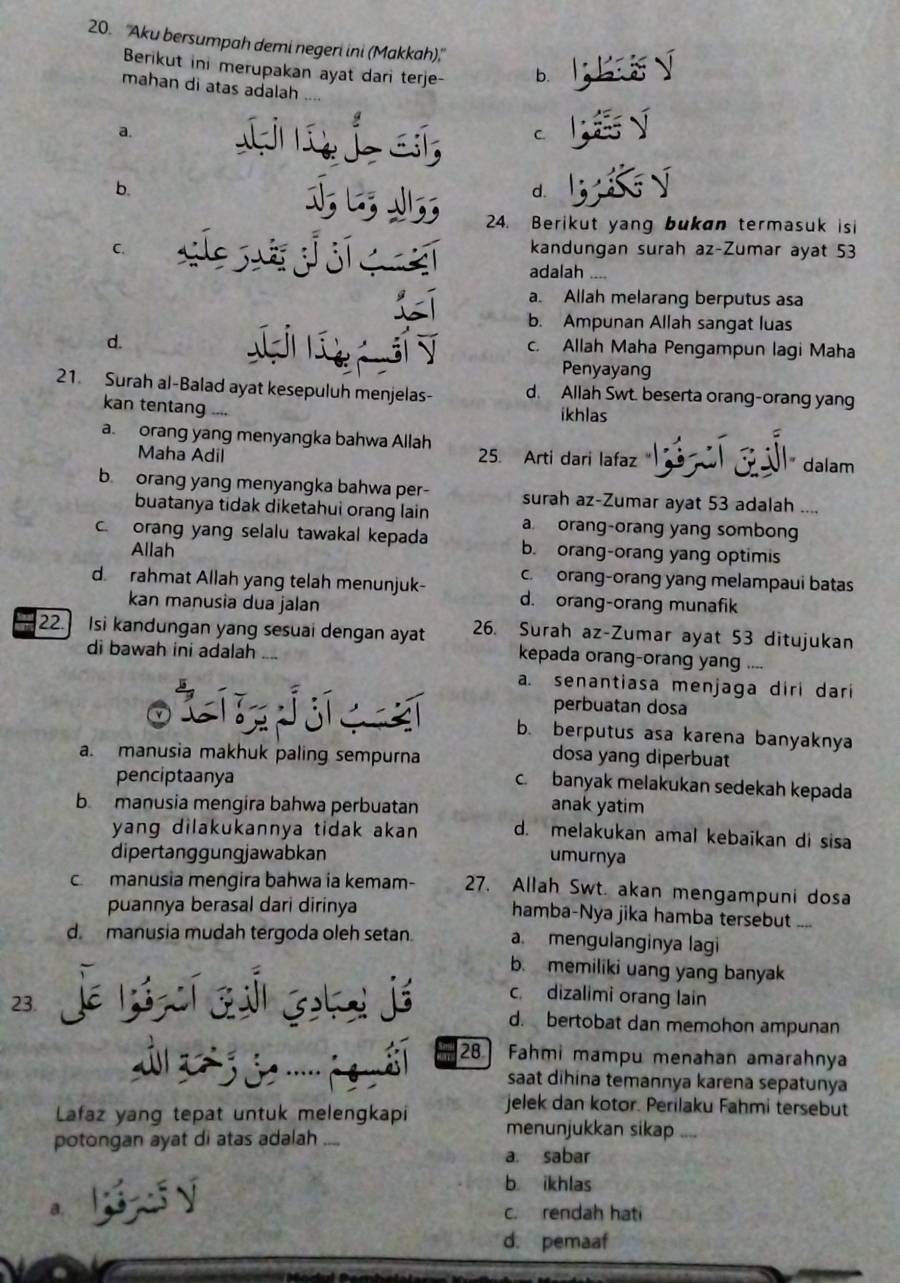 20. "Aku bersumpah demi negeri ini (Makkah),"
Berikut ini merupakan ayat dari terje-
mahan di atas adalah ....
a. وَاَنْتَ حِلٌّۢ بِهٰذَا الْبَلَدِ
b. وَوَالِدٍ وَّمَا وَلَدَ
c. اَيَحْسَبُ اَنْ لَّنْ يَّقْدِرَ عَلَيْهِ
اَحَدٌ
d. لَآ اُقْسِمُ بِهٰذَا الْبَلَدِ
21. Surah al-Balad ayat kesepuluh menjelas-
kan tentang ....
a. orang yang menyangka bahwa Allah
Maha Adil
b. orang yang menyangka bahwa per-
buatanya tidak diketahui orang lain
c. orang yang selalu tawakal kepada
Allah
d. rahmat Allah yang telah menunjuk-
kan manusia dua jalan
22. Isi kandungan yang sesuai dengan ayat
di bawah ini adalah ....
اَيَحْسَبُ اَنْ لَّمْ يَرَهٗٓ اَحَدٌۗ ٧
a. manusia makhuk paling sempurna
penciptaanya
b. manusia mengira bahwa perbuatan
yang dilakukannya tidak akan
dipertanggungjawabkan
c. manusia mengira bahwa ia kemam-
puannya berasal dari dirinya
d. manusia mudah tergoda oleh setan.
23. قُلْ يٰعِبَادِيَ الَّذِيْنَ اَسْرَفُوْا عَلٰٓى
اَنْفُسِهِمْ ..... مِنْ رَّحْمَةِ اللّٰهِ
Lafaz yang tepat untuk melengkapi
potongan ayat di atas adalah ....
a. لَا تَسْرَفُوْا
b. لَا تَقْنَطُوْا
c. لَا تَتَّقُوْا
d. لَا تَكْفُرُوْا
24. Berikut yang bukan termasuk isi
kandungan surah az-Zumar ayat 53
adalah ....
a. Allah melarang berputus asa
b. Ampunan Allah sangat luas
c. Allah Maha Pengampun lagi Maha
Penyayang
d. Allah Swt. beserta orang-orang yang
ikhlas
25. Arti dari lafaz "الَّذِيْنَ اَسْرَفُوْا" dalam
surah az-Zumar ayat 53 adalah ....
a. orang-orang yang sombong
b. orang-orang yang optimis
c. orang-orang yang melampaui batas
d. orang-orang munafik
26. Surah az-Zumar ayat 53 ditujukan
kepada orang-orang yang ....
a. senantiasa menjaga diri dari
perbuatan dosa
b. berputus asa karena banyaknya
dosa yang diperbuat
c. banyak melakukan sedekah kepada
anak yatim
d. melakukan amal kebaikan di sisa
umurnya
27. Allah Swt. akan mengampuni dosa
hamba-Nya jika hamba tersebut ....
a. mengulanginya lagi
b. memiliki uang yang banyak
c. dizalimi orang lain
d. bertobat dan memohon ampunan
28. Fahmi mampu menahan amarahnya
saat dihina temannya karena sepatunya
jelek dan kotor. Perilaku Fahmi tersebut
menunjukkan sikap ....
a. sabar
b. ikhlas
c. rendah hati
d. pemaaf